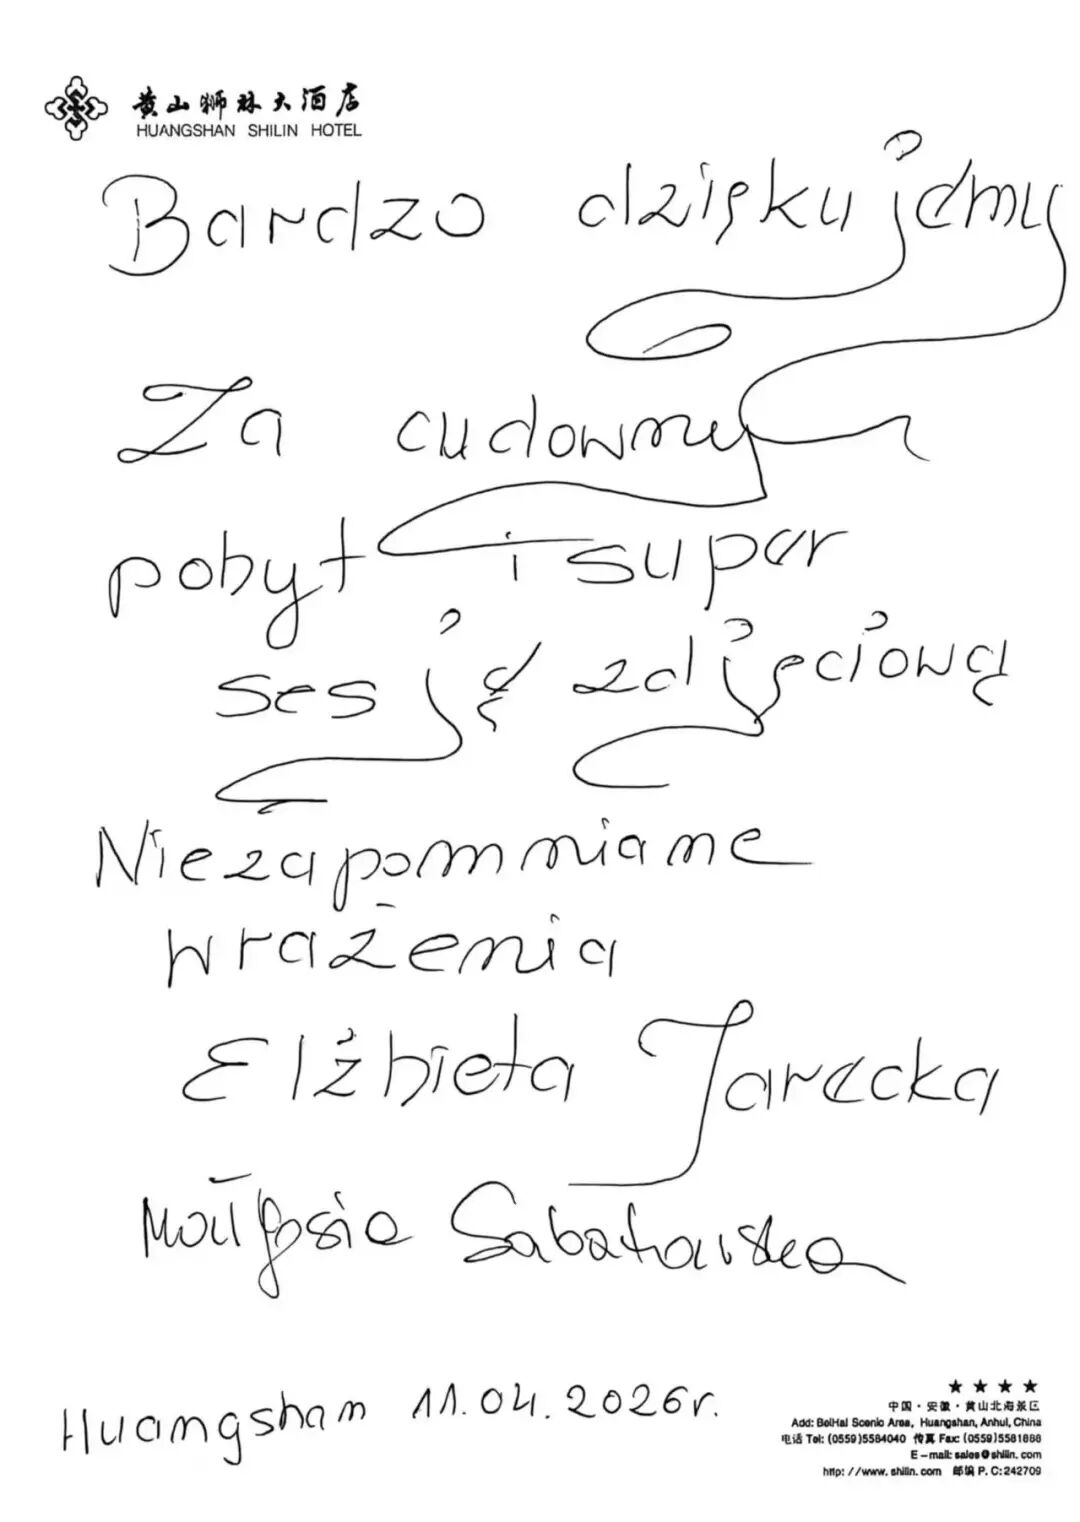 黄山狮林大酒店
HUANGSHAN SHILIN HOTEL
Bardzo dziękujemy
Za cudowny
pobyt i super
sesję zdjęciową
Niezapomniane
wrażenia
Elżbieta Jarecka
Małgosia Sabatowska
Huangshan 11.04.2026r.
★★★★
中国·安徽·黄山北海景区
Add: BeiHai Scenic Area, Huangshan, Anhui, China
电话 Tel: (0559)5584040 传真 Fax: (0559)5581888
E-mail: sales@shilin.com
http://www.shilin.com 邮编 P.C:242709